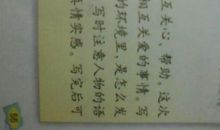 互关心、帮助。这次
相互关爱的事情。写
的环境里，是怎么发
写时注意人物的语
真情实感。写完后可